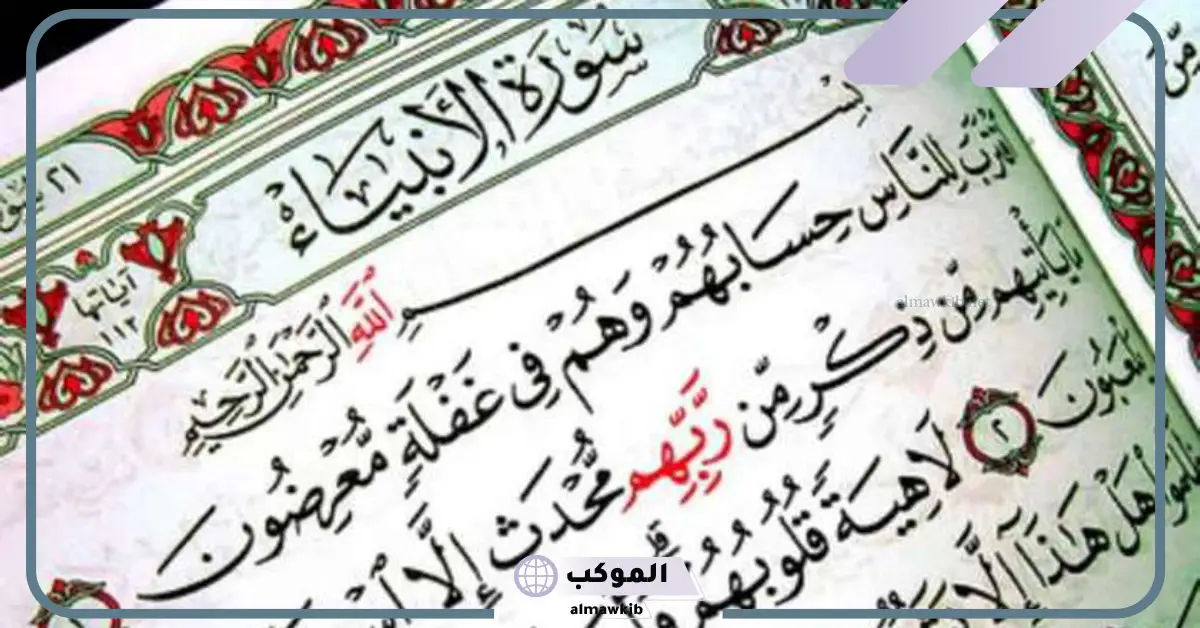 سُورَةُ الأَنبِيَاءِ
آيَاتُهَا
١١٢
٢١
بِسْمِ اللَّهِ الرَّحْمَٰنِ الرَّحِيمِ
لِلنَّاسِ حِسَابُهُمْ وَهُمْ فِي غَفْلَةٍ مُّعْرِضُونَ
يَأْتِيهِم مِّن ذِكْرٍ مِّن رَّبِّهِم مُّحْدَثٍ إِلَّا
يَلْعَبُونَ ٢ لَاهِيَةً قُلُوبُهُمْ
هَلْ هَٰذَا إِلَّا
مِّن
almawkib.net
الموكب
almawkib